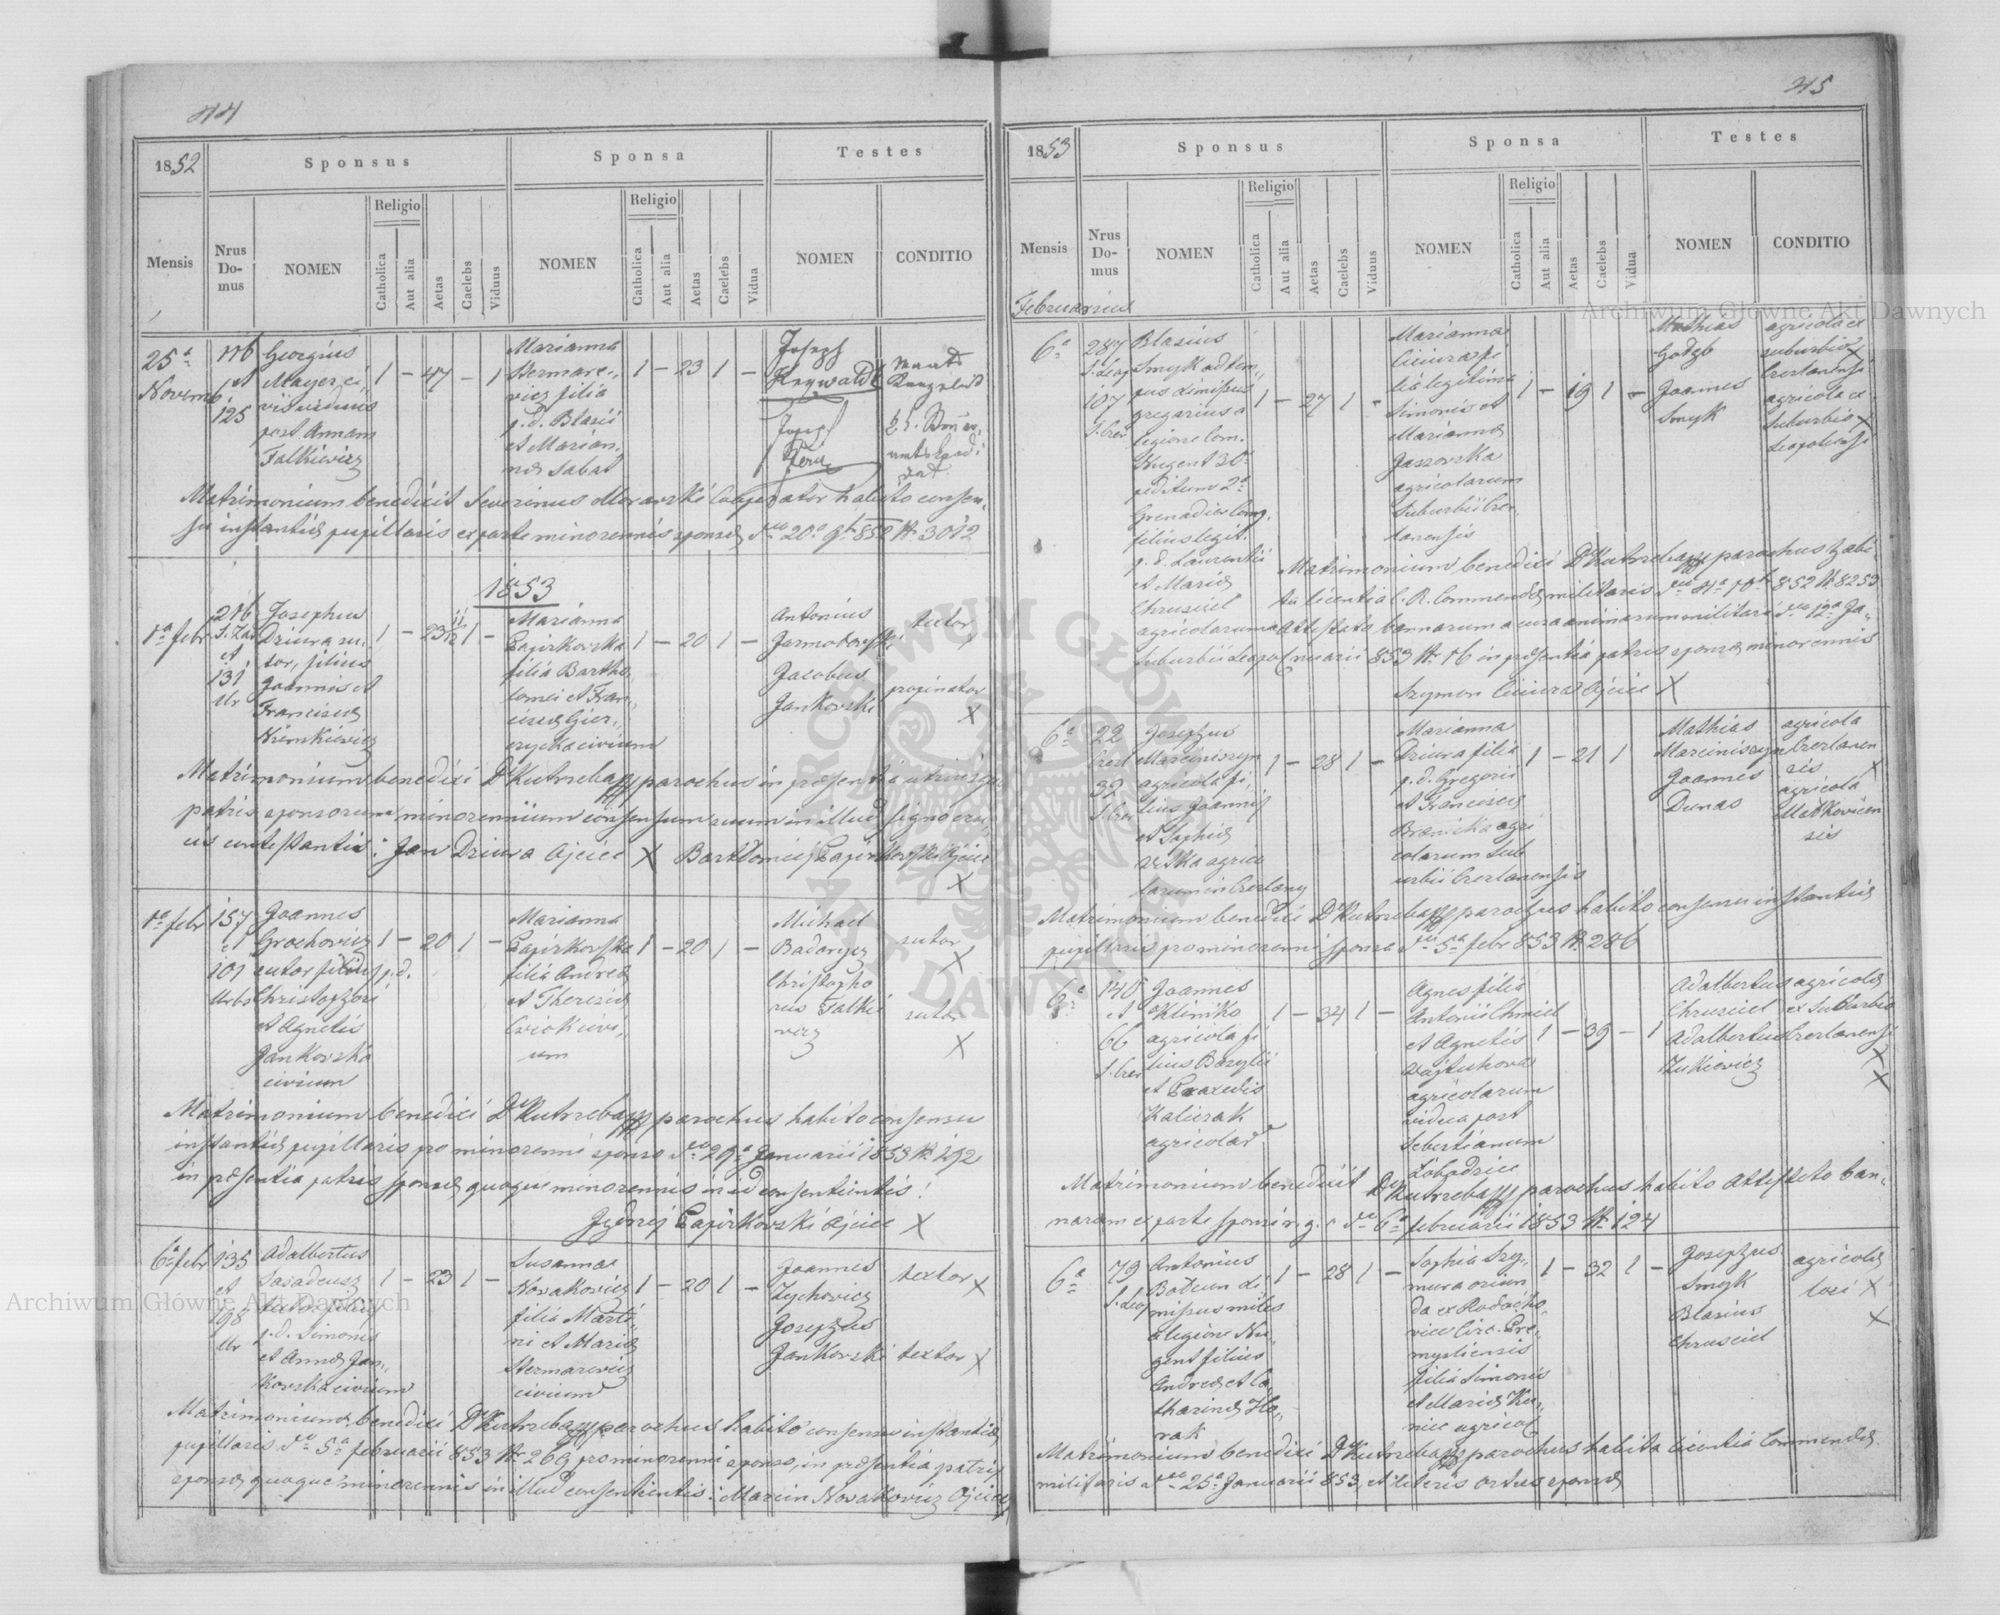 44
1852
Sponsus
Sponsa
Testes
Mensis
Nrus Do- mus
NOMEN
Religio
Catholica
Aut alia
Aetas
Caelebs
Viduus
NOMEN
Religio
Catholica
Aut alia
Aetas
Caelebs
Vidua
NOMEN
CONDITIO
25a
Novemb
116
et
125
Georgius
Mayer ci„
vis viduus
post Annam
Falkiewicz
1 — 47 — 1
Marianna
Stermare„
wicz filia
p. d. Blasii
et Marian„
nae Sabat
1 — 23 1 —
Joseph
Heywaldt
Joseph
Matrimonium benedixit Severinus Morawski Cooperator habito consen„
su instantiae pupillaris ex parte minorennis sponsae dto 20a 9b 852 N 3012
1853
1a febr
216
S. Zar
et
131
Ur
Josephus
Dziura su„
tor, filius
Joannis et
Franciscae
Niemkiewicz
1 — 23 11/12 1 —
Marianna
Papirkovska
filia Bartho„
lomei et Fran„
ciscae Gier„
czycka civium
1 — 20 1 —
Antonius
Jarmotowski
Jacobus
Jankovski
sutor
X
propinator
X
Matrimonium benedixi D Kutrzeba parochus in presentia utriusque
patris sponsorum minorennium consensum suum in illud signo cru„
cis contestantis: Jan Dziura Ojciec X Bartłomiej Papirkowski Ojciec
X
1a febr
157
et
101
Urbs
Joannes
Grochovicz
sutor filius p. d.
Christophori
et Agnetis
Jankovska
civium
1 — 20 1 —
Marianna
Papirkovska
filia Andreae
et Theresiae
civi„
um
1 — 20 1 —
Michael
Badowicz
Christopho
rus Falkie
wicz
sutor
X
sutor
X
Matrimonium benedixi D Kutrzeba parochus habito consensu
instantiae pupillaris pro minorenni sponso dto 29a Januarii 1853 N 192
in presentia patris sponsae quoque minorennis in id consentientis:
Jędrzej Papirkovski Ojciec X
6a febr
135
et
198
Ur
Adalbertus
Sasadeusz
sutor filius
p. d. Simonis
et Annae Jan„
kovska civium
1 — 23 1 —
Susanna
Novakovicz
filia Marti„
ni et Mariae
Stermarewicz
civium
1 — 20 1 —
Joannes
Zychovicz
Josephus
Jankovski
textor X
textor X
Matrimonium benedixi D Kutrzeba parochus habito consensu instantiae
pupillaris dto 5a februarii 853 N 269 pro minorenni sponso, in presentia patris
sponsae quoque minorennis in illud consentientis: Marcin Novakovicz Ojciec
45
1853
Sponsus
Sponsa
Testes
Mensis
Nrus Do- mus
NOMEN
Religio
Catholica
Aut alia
Aetas
Caelebs
Viduus
NOMEN
Religio
Catholica
Aut alia
Aetas
Caelebs
Vidua
NOMEN
CONDITIO
Februarius
6a
287
S. Leop
107
S. Czer
Blasius
Smyk ad tem„
pus dimissus
gregarius a
legione Com.
Nugent 30a
peditum 2a
Grenadier Comp.
filius legit.
p. d. Laurentii
et Mariae
Chrusciel
agricolarum
suburbii Leopol
1 — 27 1 —
Marianna
Ciuira fi„
lia legitima
Simonis et
Mariannae
Jaszovska
agricolarum
Suburbii Czer„
lanensis
1 — 19 1 —
Mathias
Joannes
Smyk
agricola ex
suburbio X
Czerlanensi
agricola ex
Suburbio X
Leopoliensi
Matrimonium benedixi D Kutrzeba parochus habi„
ta licentia C. R. Commendae militaris dto 4a 10b 852 N 8259
attestato bannarum a cura animarum militari dto 12a Ja„
nuarii 853 N 16 in presentia patris sponsae minorennis
Szymon Ciuira Ojciec X
6a
22
Czerl
32
S. Czer
Josephus
Marciniszyn
agricola fi„
lius Joannis
et Sophiae
agrico
larum in Czerlany
1 — 28 1 —
Marianna
Dziura filia
p. d. Gregorii
et Franciscae
agri
colarum Sub
urbii Czerlanensis
1 — 21 1
Mathias
Marciniszyn
Joannes
Dunas
agricola
Czerlanen
sis X
agricola
Malkovicen
sis
Matrimonium benedixi D Kutrzeba parochus habito consensu instantiae
pupillaris pro minorenni sponsa dto 5a febr 853 N 286
6a
140
et
66
S. Czer
Joannes
Kliniko
agricola fi
lius Bazylii
et Praxedis
Kaliczak
agricolar
1 — 34 1 —
Agnes filia
Antonii Chmiel
et Agnetis
agricolarum
vidua post
Sebastianum
1 — 39 — 1
Adalbertus
Chrusciel
Adalbertus
Zukievicz
agricolae
ex Suburbio
Czerlanensi
X
X
Matrimonium benedixit D Kutrzeba parochus habito attestato ban„
narum ex parte sponsi r. g. c dto 6a februarii 1853 N 124
6a
79
S. Leop
Antonius
Bodtun di„
missus miles
a legione Nu„
gent filius
Andreae et Ca„
tharinae Ho„
rak
1 — 28 1 —
Sophia Szy„
mura oriun
da ex Radocho„
vice Circ. Pre„
mysliensis
filia Simonis
et Mariae Ku„
nic agricol
1 — 32 1 —
Josephus
Smyk
Blasius
Chrusciel
agricolae
loci X
X
Matrimonium benedixi D Kutrzeba parochus habita licentia Commendae
militaris dto 25a Januarii 853 et literis ortus sponsae
Archiwum Główne Akt Dawnych
Archiwum Główne Akt Dawnych
ARCHIWUM GŁÓWNE AKT DAWNYCH